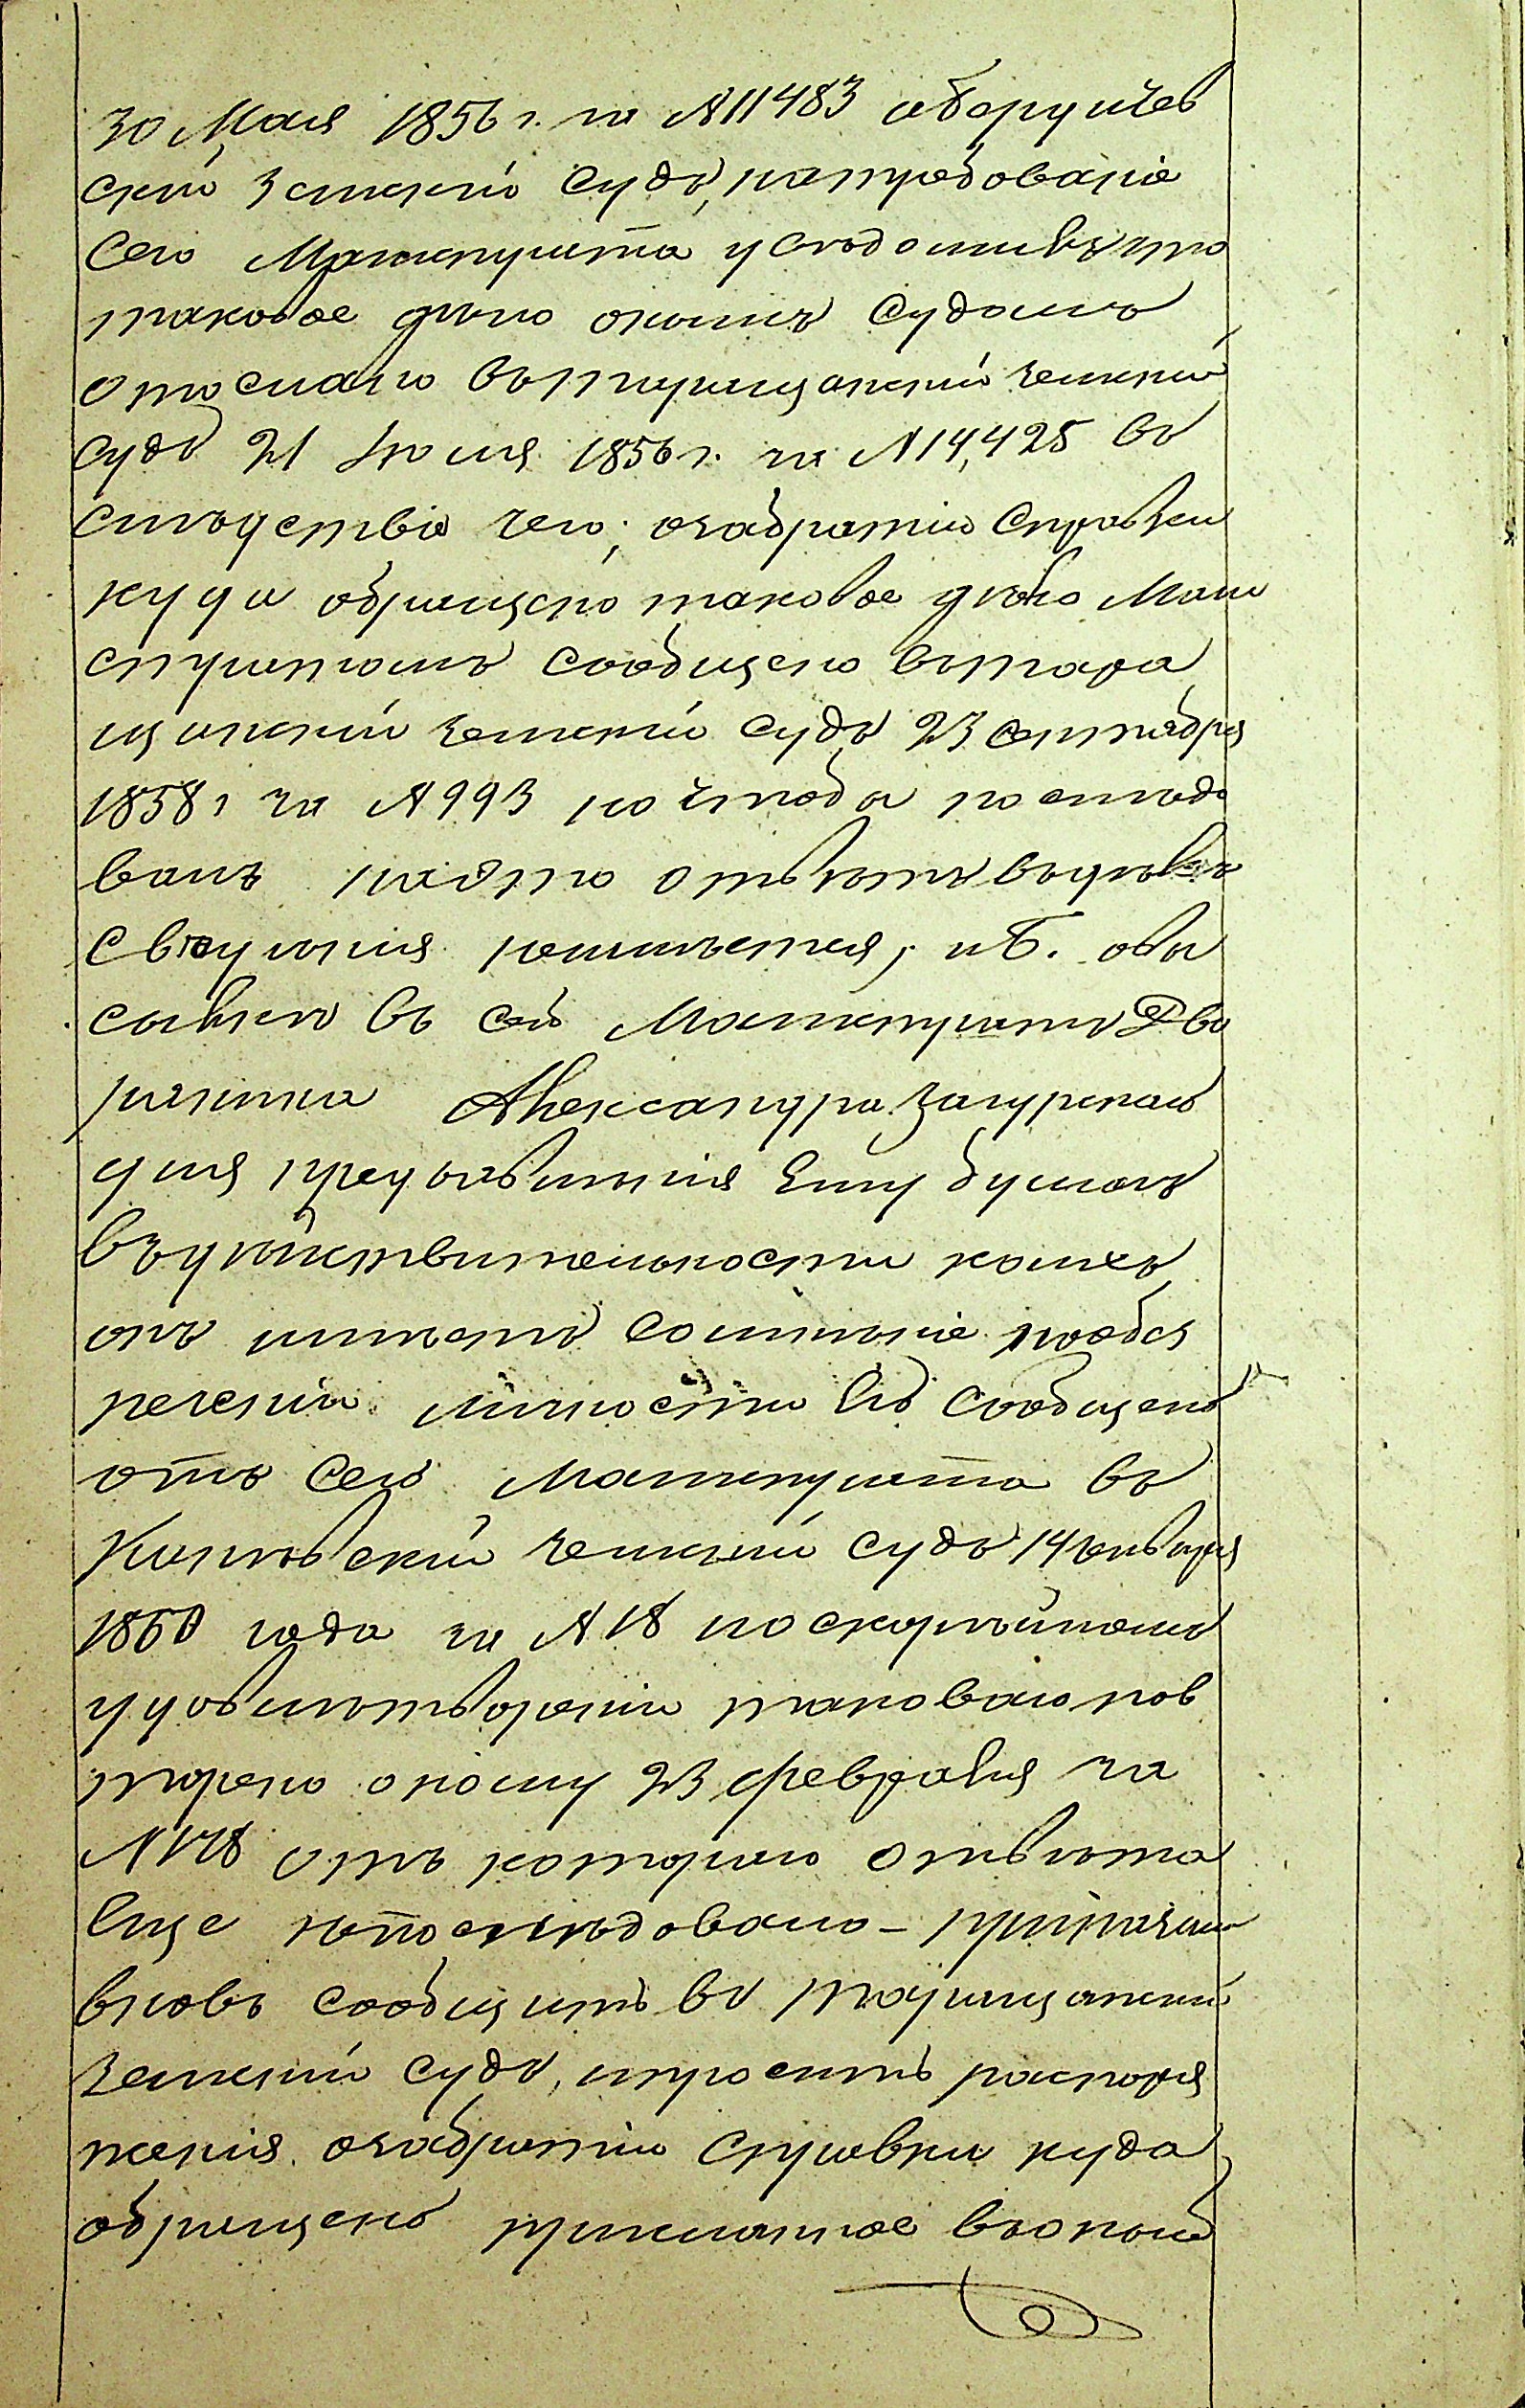 30 Мая 1856 г. за №11483 а Борулчев
скій Земскій Судъ, на требованіе
Сего Магистрата уведомивъ что
таковое дѣло онымъ Судомъ
отослано въ Таращанскій земскій
судъ 21 Іюля 1856 г. за №14,425 въ
слѣдствіе чего; о забратіи Справки
куда обращено таковое дѣло Маги
стратомъ сообщено въ Тара
щанскій земскій судъ 23 Сентября
1858 г за №993 но чтобы послѣдо
валъ на это отвѣтъ въ дѣлѣ
Сведенія неимѣется, и Б. о вы
сылкѣ въ сей Магистратъ Дво
рянина Александра Загурскаго
для предъявленія Ему бумагъ
въ дѣйствительности коихъ
онъ имѣетъ Сомнѣніе и о обез
печеніи личности Его Сообщено
отъ Сего Магистрата въ
Липовскій земскій судъ 14 января
1860 года за №18 и о скорѣйшемъ
удовлетвореніи таковаго пов
торено оному 23 февраля за
№178 отъ котораго отвѣта
Еще непослѣдовало – приказали
вновь сообщить въ Таращанскій
земскій судъ, и просить распоря
женія о забратіи Справки куда
обращено присланное въ оный